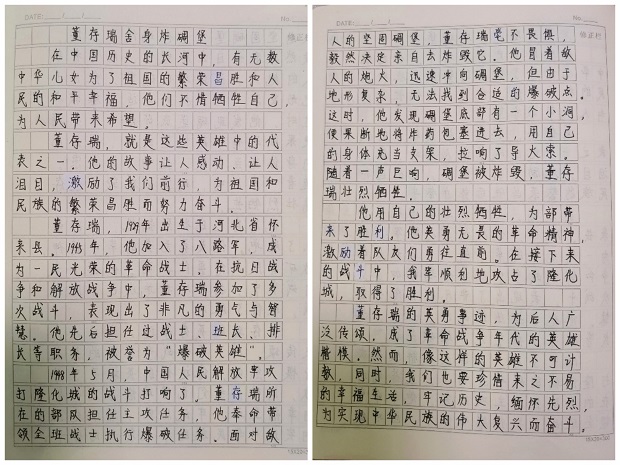 DATE: / /
No.
董存瑞舍身炸碉堡
在中国历史的长河中，有无数
中华儿女为了祖国的繁荣昌胜和人
民的和平幸福，他们不惜牺牲自己，
为人民带来希望。
董存瑞，就是这些英雄中的代
表之一。他的故事让人感动、让人
泪目，激励了我们前行，为祖国和
民族的繁荣昌胜而努力奋斗。
董存瑞，1929年出生于河北省怀
来县。1945年，他加入了八路军，成
为一民光荣的革命战士。在抗日战
争和解放战争中，董存瑞参加了多
次战斗，表现出了非凡的勇气与智
慧。他先后担任过战士、班长、排
长等职务，被誉为“爆破英雄”。
1948年5月，中国人民解放军攻
打隆化城的战斗打响了，董存瑞所
在的部队担任主攻任务，他奉命带
领全班战士执行爆破任务。面对敌
DATE: / /
No.
人的坚固碉堡，董存瑞毫不畏惧，
毅然决定亲自去炸毁它。他冒着敌
人的炮火，迅速冲向碉堡，但由于
地形复杂，无法找到合适的爆破点。
这时，他发现碉堡底部有一个小洞，
便果断地将炸药包塞进去，用自己
的身体充当支架，拉响了导火索。
随着一声巨响，碉堡被炸毁，董存
瑞壮烈牺牲。
他用自己的壮烈牺牲，为部带
来了胜利。他英勇无畏的革命精神，
激励着队友们勇往直前。在接下来
的战斗中，我军顺利地攻占了隆化
城，取得了胜利。
董存瑞的英勇事迹，为后人广
泛传颂。成了革命战争年代的英雄
楷模。然而，像这样的英雄不可计
数，同时，我们也要珍惜来之不易
的幸福生活，牢记历史，缅怀先烈，
为实现中华民族的伟大复兴而奋斗。